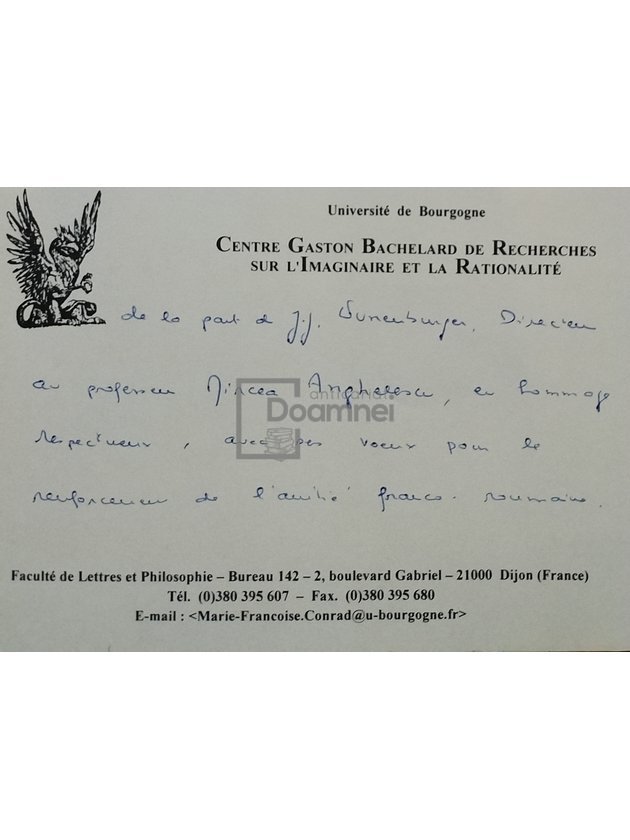 Université de Bourgogne
CENTRE GASTON BACHELARD DE RECHERCHES
SUR L'IMAGINAIRE ET LA RATIONALITÉ
de la part de J.J. Wunenburger, Directeur
au professeur Mircea Anghelescu, en hommage
anticariat
Doamnei
respectueux, avec mes voeux pour le
renforcement de l'amitié franco-roumaine.
Faculté de Lettres et Philosophie – Bureau 142 – 2, boulevard Gabriel – 21000 Dijon (France)
Tél. (0)380 395 607 – Fax. (0)380 395 680
E-mail : <Marie-Francoise.Conrad@u-bourgogne.fr>